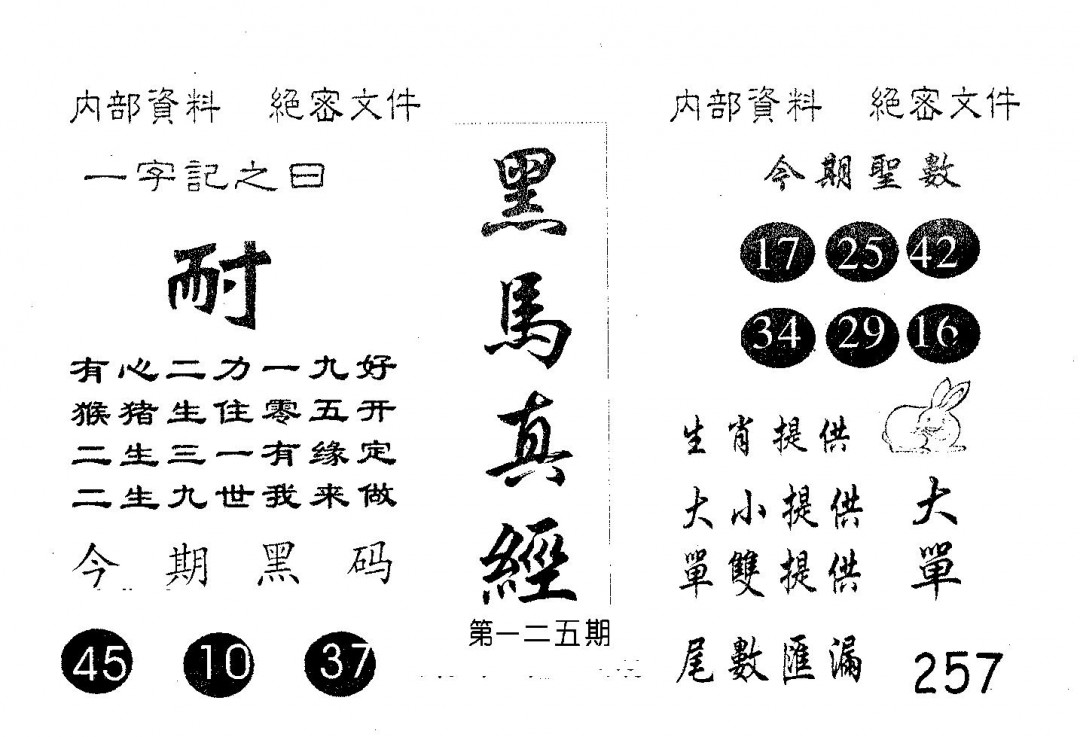 内部資料 絕密文件
一字記之曰
耐
有心二力一九好
猴猪生住零五开
二生三一有缘定
二生九世我来做
今期黑码
45 10 37
黑馬真經
第一二五期
内部資料 絕密文件
今期聖數
17 25 42
34 29 16
生肖提供
大小提供 大
單雙提供 單
尾數匯漏 257